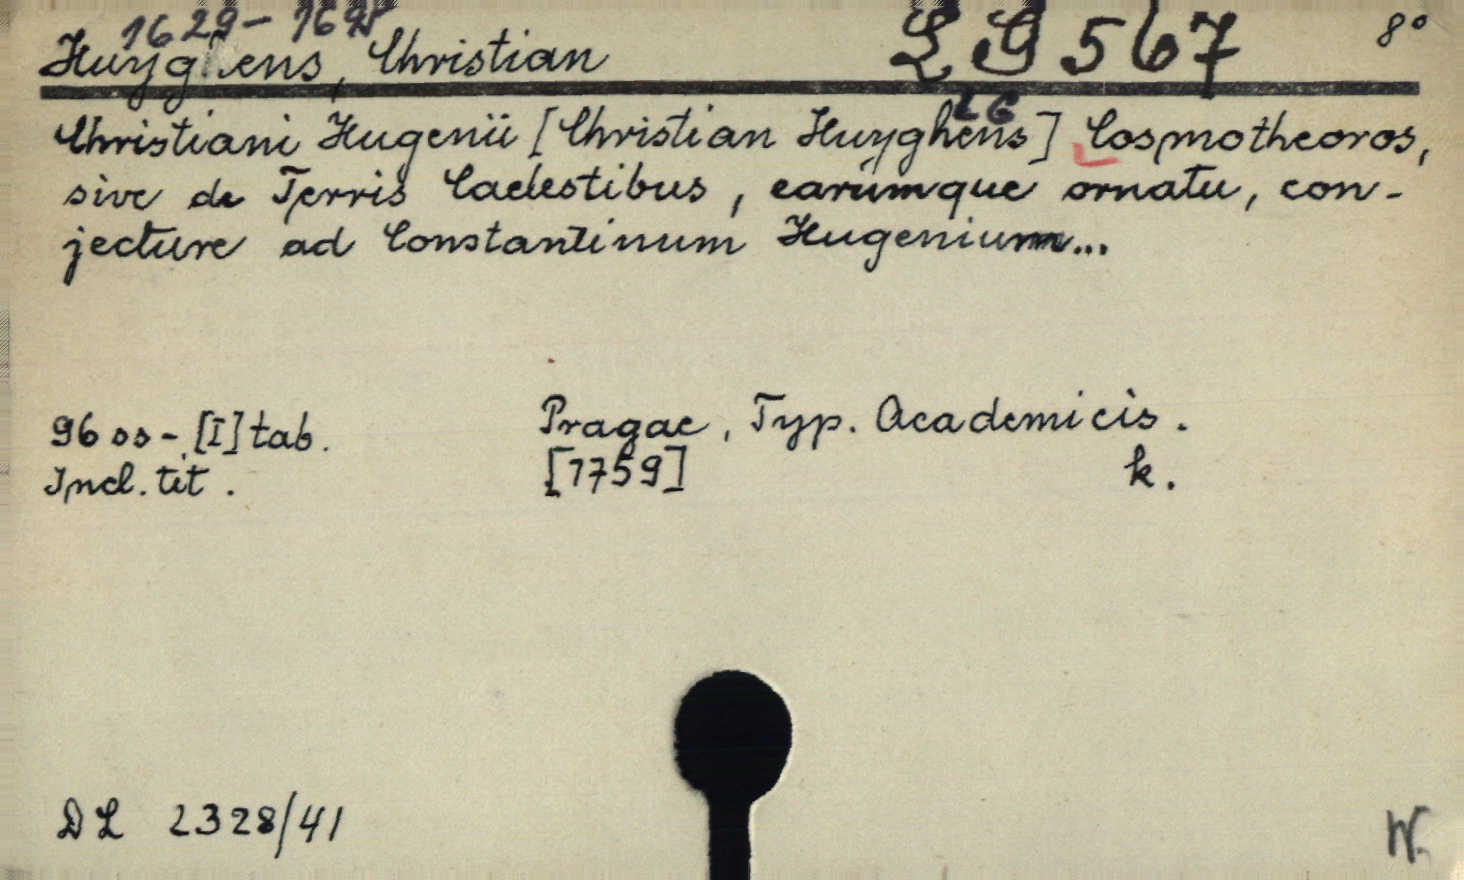 1629-169
Huygens, Christian LG 567 8°
LG
Christiani Hugenii [Christian Huyghens] Cosmotheoros,
sive de Terris Caelestibus, earumque ornatu, con-
jecture ad Constantinum Hugenium...
96 ss - [I] tab. Pragae, Typ. Academicis.
Incl. tit. [1759] k.
DL 2328/41
W.